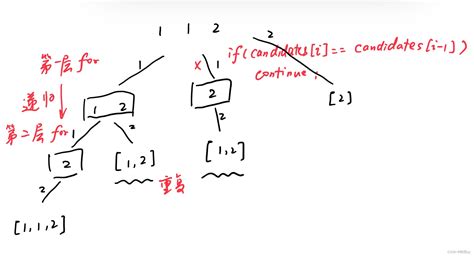 1 1 2
第一层for
1
×
1
2
if(candidates[i]== candidates[i-1])
continue;
递归
1 2
2
[2]
第二层for
1
2
2
2
[1,2]
[1,2]
重复
2
[1,1,2]